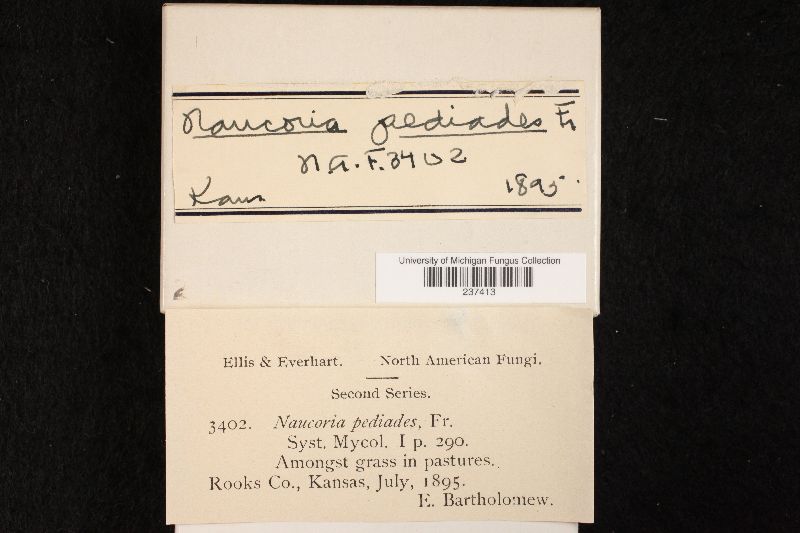 Naucoria pediades Fr
N.A.F. 3402
Kans 1895.
University of Michigan Fungus Collection
237413
Ellis & Everhart. North American Fungi.
Second Series.
3402. Naucoria pediades, Fr.
Syst. Mycol. I p. 290.
Amongst grass in pastures.
Rooks Co., Kansas, July, 1895.
E. Bartholomew.